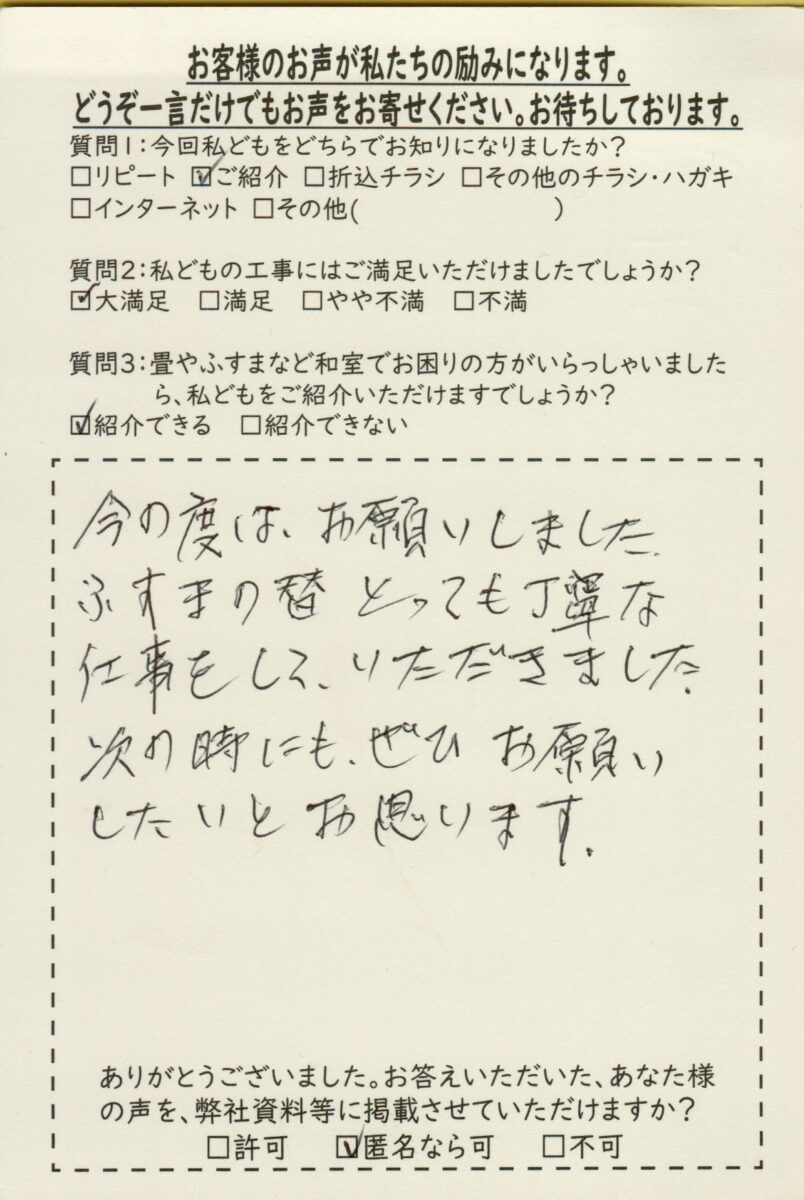 お客様のお声が私たちの励みになります。
どうぞ一言だけでもお声をお寄せください。お待ちしております。
質問1:今回私どもをどちらでお知りになりましたか?
□リピート ☑ご紹介 □折込チラシ □その他のチラシ・ハガキ
□インターネット □その他( )
質問2:私どもの工事にはご満足いただけましたでしょうか?
☑大満足 □満足 □やや不満 □不満
質問3:畳やふすまなど和室でお困りの方がいらっしゃいました
ら、私どもをご紹介いただけますでしょうか?
☑紹介できる □紹介できない
今の度は、お願いしました。
ふすまの替 とっても丁寧な
仕事をして、いただきました。
次の時にも、ぜひ お願い
したいとお思います。
ありがとうございました。お答えいただいた、あなた様
の声を、弊社資料等に掲載させていただけますか?
□許可 ☑匿名なら可 □不可